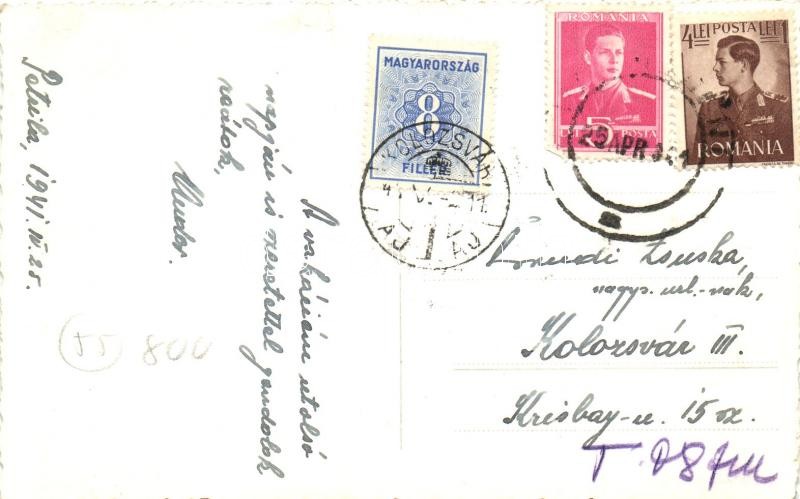 Petrila, 1941. IV. 25.
A vakációm utolsó
napján is szeretettel gondolok
reátok,
MAGYARORSZÁG
8
FILLÉR
KOLOZSVÁR
ROMANIA
5
LEI POSTA
4 LEI POSTA LEI 1
ROMANIA
25 APR 941
Zsuska,
nagys. url.-nák,
Kolozsvár III.
Krisbay-u. 15 sz.
T. 08
55 800